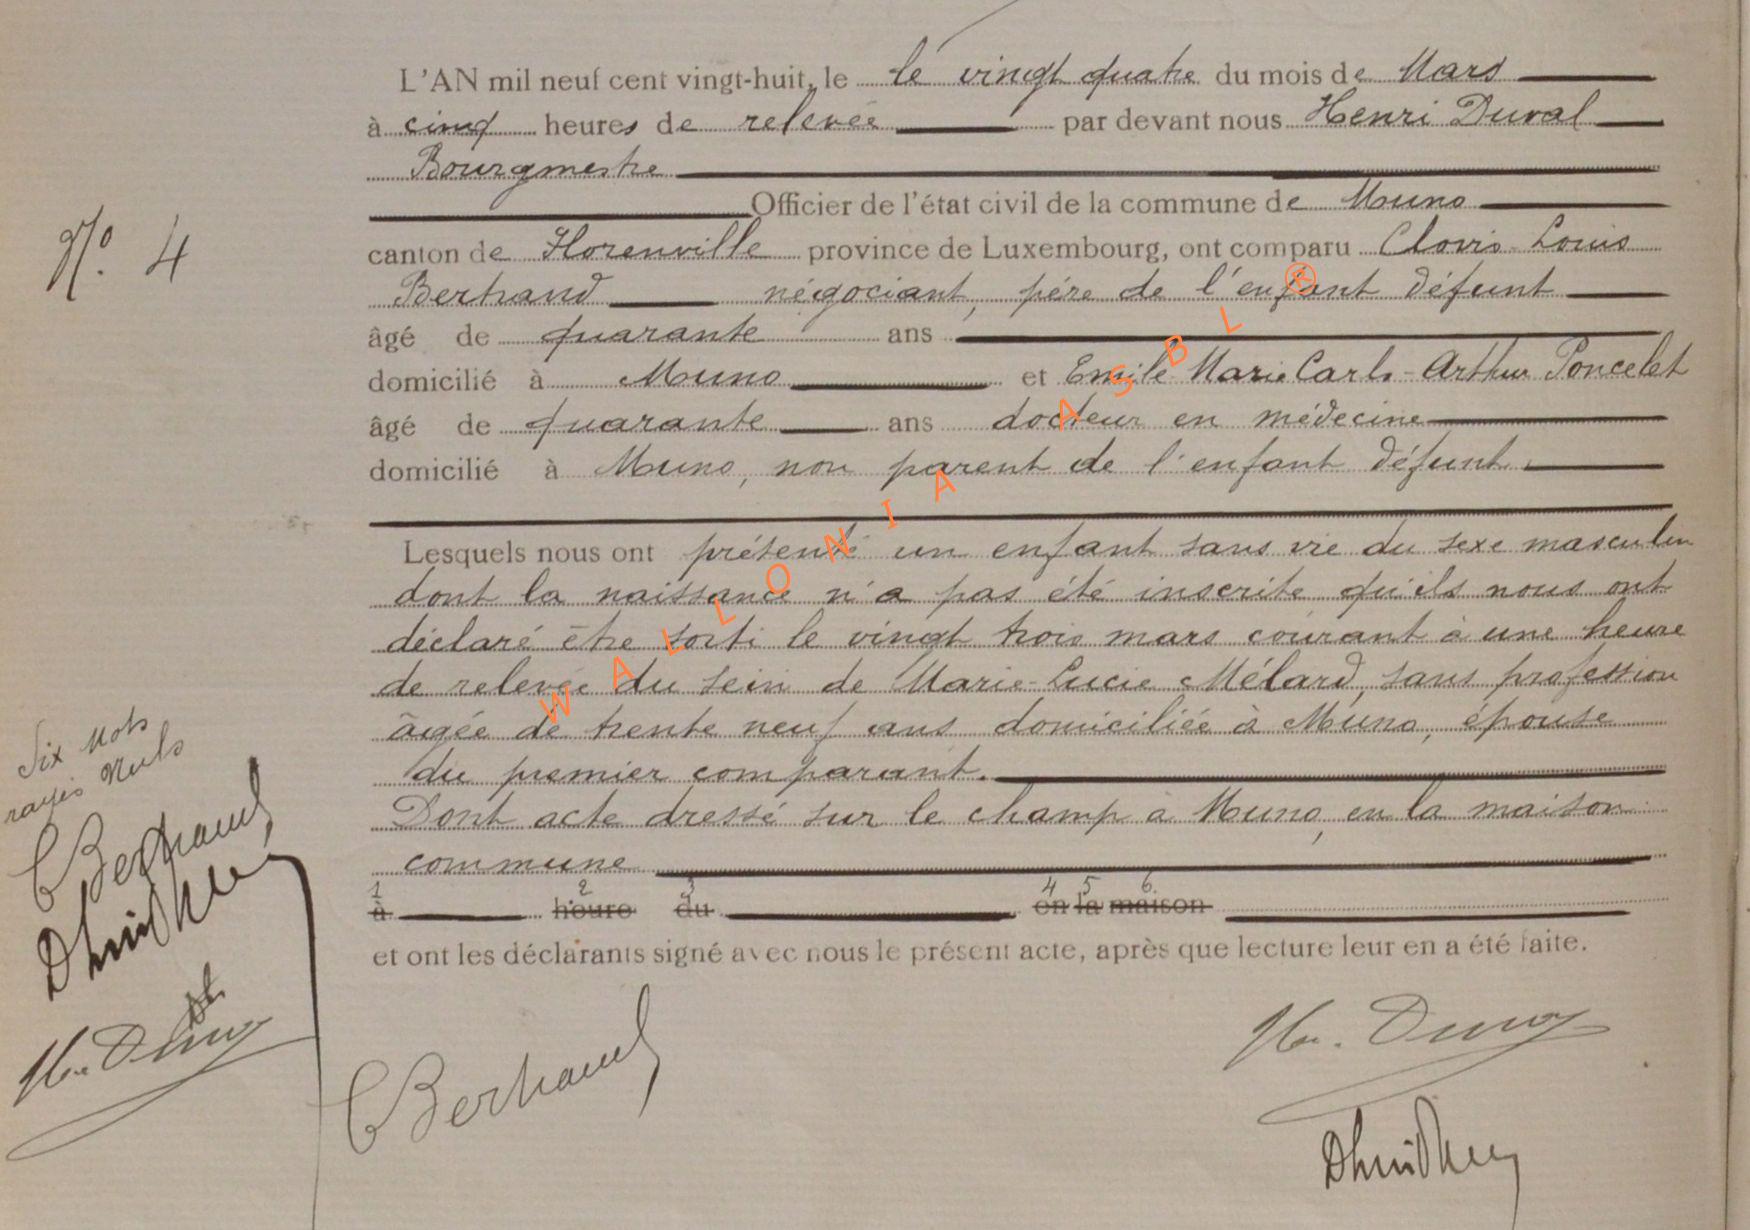 L'AN mil neuf cent vingt-huit, le le vingt quatre du mois de Mars
à cinq heures de relevée par devant nous Henri Duval
Bourgmestre
Officier de l'état civil de la commune de Muno
N° 4
canton de Florenville province de Luxembourg, ont comparu Clovis Louis
Bertrand négociant, père de l'enfant défunt
âgé de quarante ans
domicilié à Muno et Emile Marie Carlo-Arthur Poncelet
âgé de quarante ans docteur en médecine
domicilié à Muno, non parent de l'enfant défunt
Lesquels nous ont présenté un enfant sans vie du sexe masculin
dont la naissance n'a pas été inscrite qu'ils nous ont
déclaré être sorti le vingt trois mars courant à une heure
de relevée du sein de Marie-Lucie Mélard, sans profession
âgée de trente neuf ans domiciliée à Muno, épouse
du premier comparant.
Dont acte dressé sur le champ à Muno, en la maison
commune
1 2 3 4 5 6
à heure du en la maison
et ont les déclarants signé avec nous le présent acte, après que lecture leur en a été faite.
Six mots
rayés nuls
C Bertrand
C Bertrand
WALLONIA ASBL ®